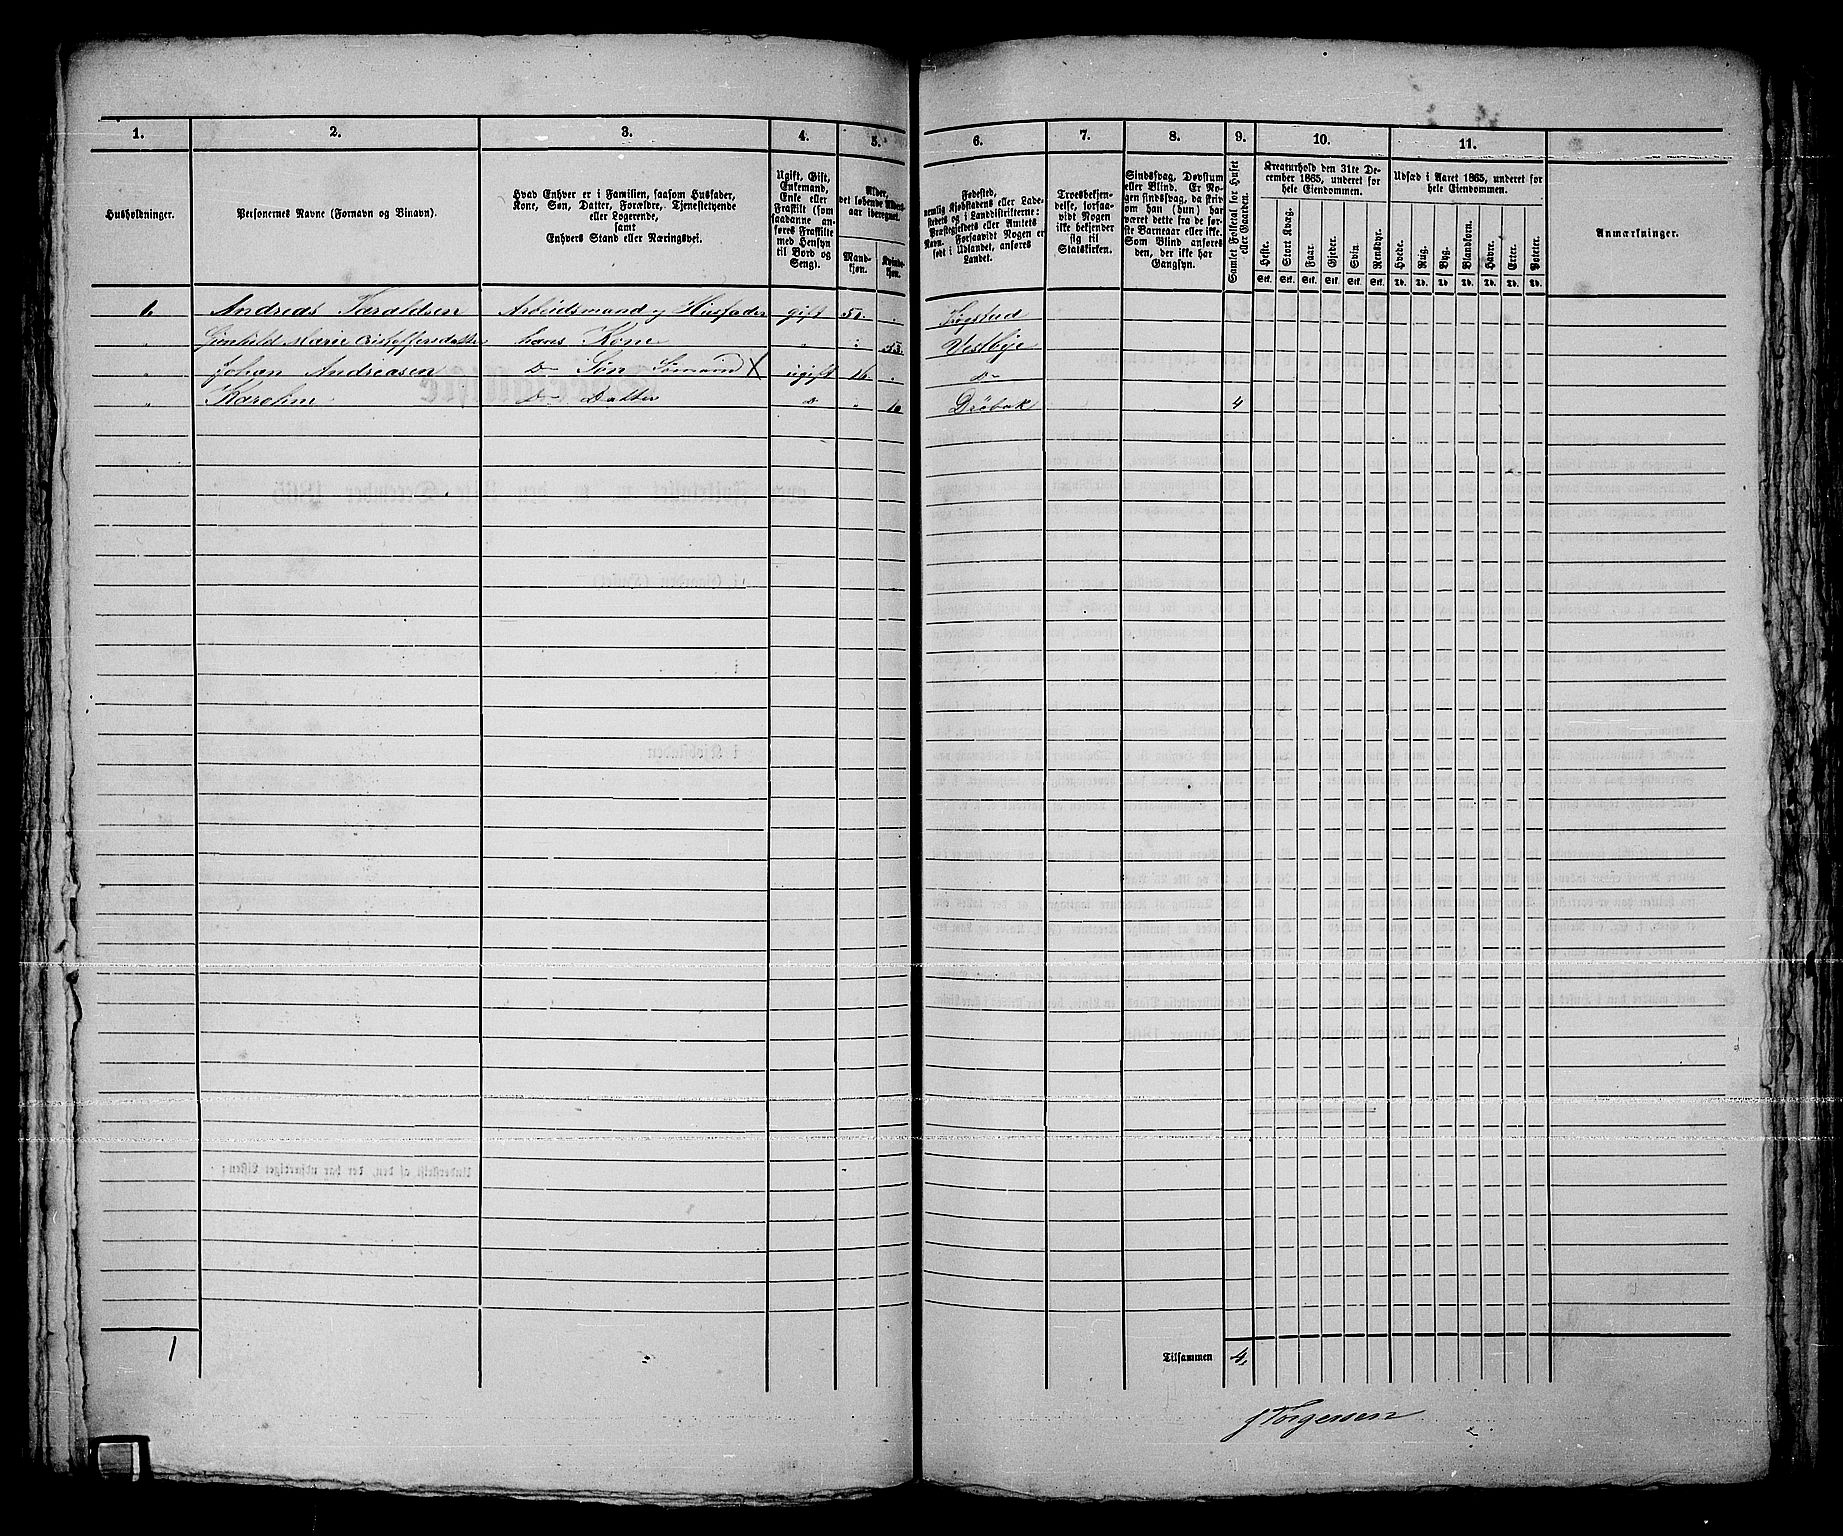 1. 2. 3. 4. 5. 6. 7. 8. 9. 10. 11.
Husholdninger.
Personernes Navne (Fornavn og Binavn).
Hvad Enhver er i Familien, saasom Husfader,
Kone, Søn, Datter, Forældre, Tjenestetyende
eller Logerende,
samt
Enhvers Stand eller Næringsvei.
Ugift, Gift,
Enkemand,
Enke eller
Fraskilt (som
saadanne an-
føres Fraskilte
med Hensyn
til Bord og
Seng).
Alder,
det løbende Alders-
aar iberegnet.
Mand-
kjøn.
Kvinde-
kjøn.
Fødested,
nemlig Kjøbstadens eller Lade-
stedets og i Landdistrikterne:
Præstegjeldets eller Amtets
Navn. Forsaavidt Nogen er
født i Udlandet, anføres
Landet.
Troesbekjen-
delse, forsaa-
vidt Nogen
ikke bekjender
sig til
Statskirken.
Sindssvag, Døvstum
eller Blind. Er No-
gen sindssvag, da skriv
om han (hun) har
været dette fra de før-
ste Barneaar eller ikke.
Som Blind anføres
den, der ikke har
Gangsyn.
Samlet Folketal for Huset
eller Gaarden.
Kreaturhold den 31te De-
cember 1865, underet for
hele Eiendommen.
Heste. Stort Kvæg. Faar. Gjeder. Svin. Rensdyr.
Stk. Stk. Stk. Stk. Stk. Stk.
Udsæd i Aaret 1865, underet for
hele Eiendommen.
Hvede. Rug. Byg. Blandkorn. Havre. Erter. Poteter.
Td. Td. Td. Td. Td. Td. Td.
Anmærkninger.
Andreas Taraldsen Arbeidsmand og Husfader gift 51. "
" Gunhild Marie hans Kone " " Vestbye
" Johan Andreasen Do Søn Sømand X ugift 16. " Do
" Karoline Do Datter Do " Drøbak 4
1
Tilsammen 4.
J Torgersen